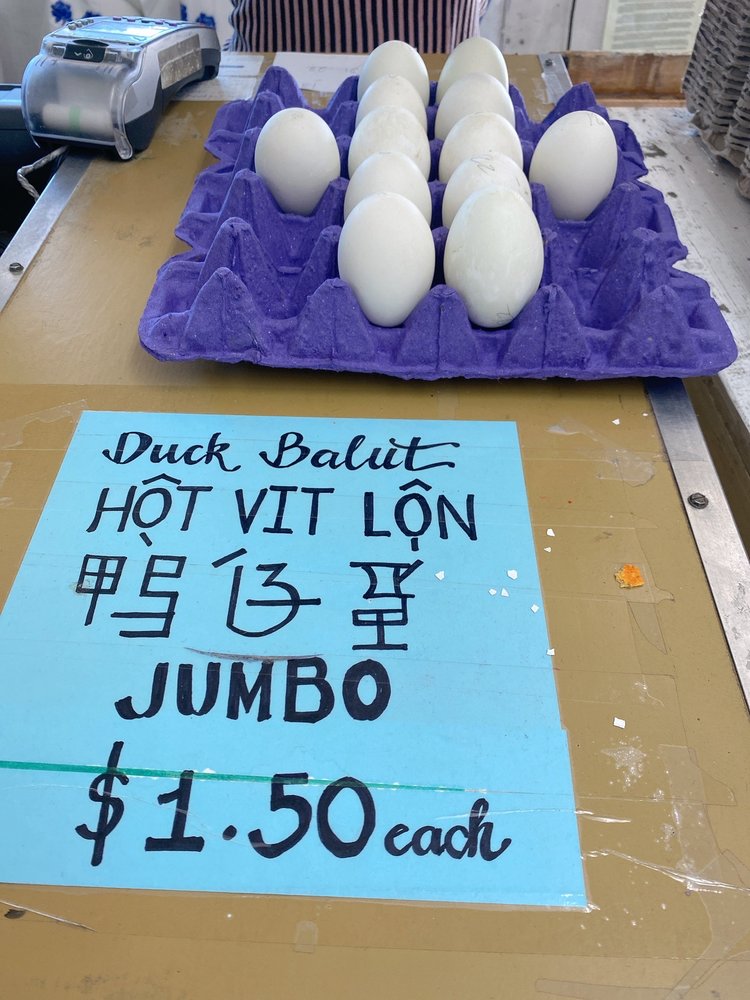 Duck Balut
HỘT VIT LỘN
鸭仔蛋
JUMBO
$1.50 each